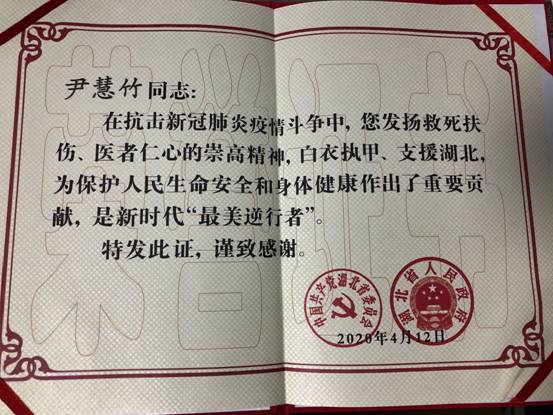 尹慧竹同志：
在抗击新冠肺炎疫情斗争中，您发扬救死扶
伤、医者仁心的崇高精神，白衣执甲、支援湖北，
为保护人民生命安全和身体健康作出了重要贡
献，是新时代“最美逆行者”。
特发此证，谨致感谢。
中国共产党湖北省委员会
湖北省人民政府
2020年4月12日